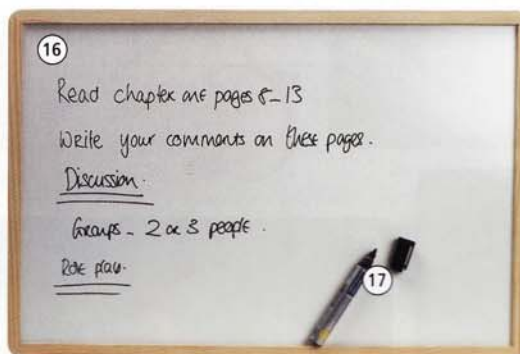 16
Read chapter one pages 8-13
Write your comments on these pages.
Discussion.
Groups - 2 or 3 people.
Role play.
17